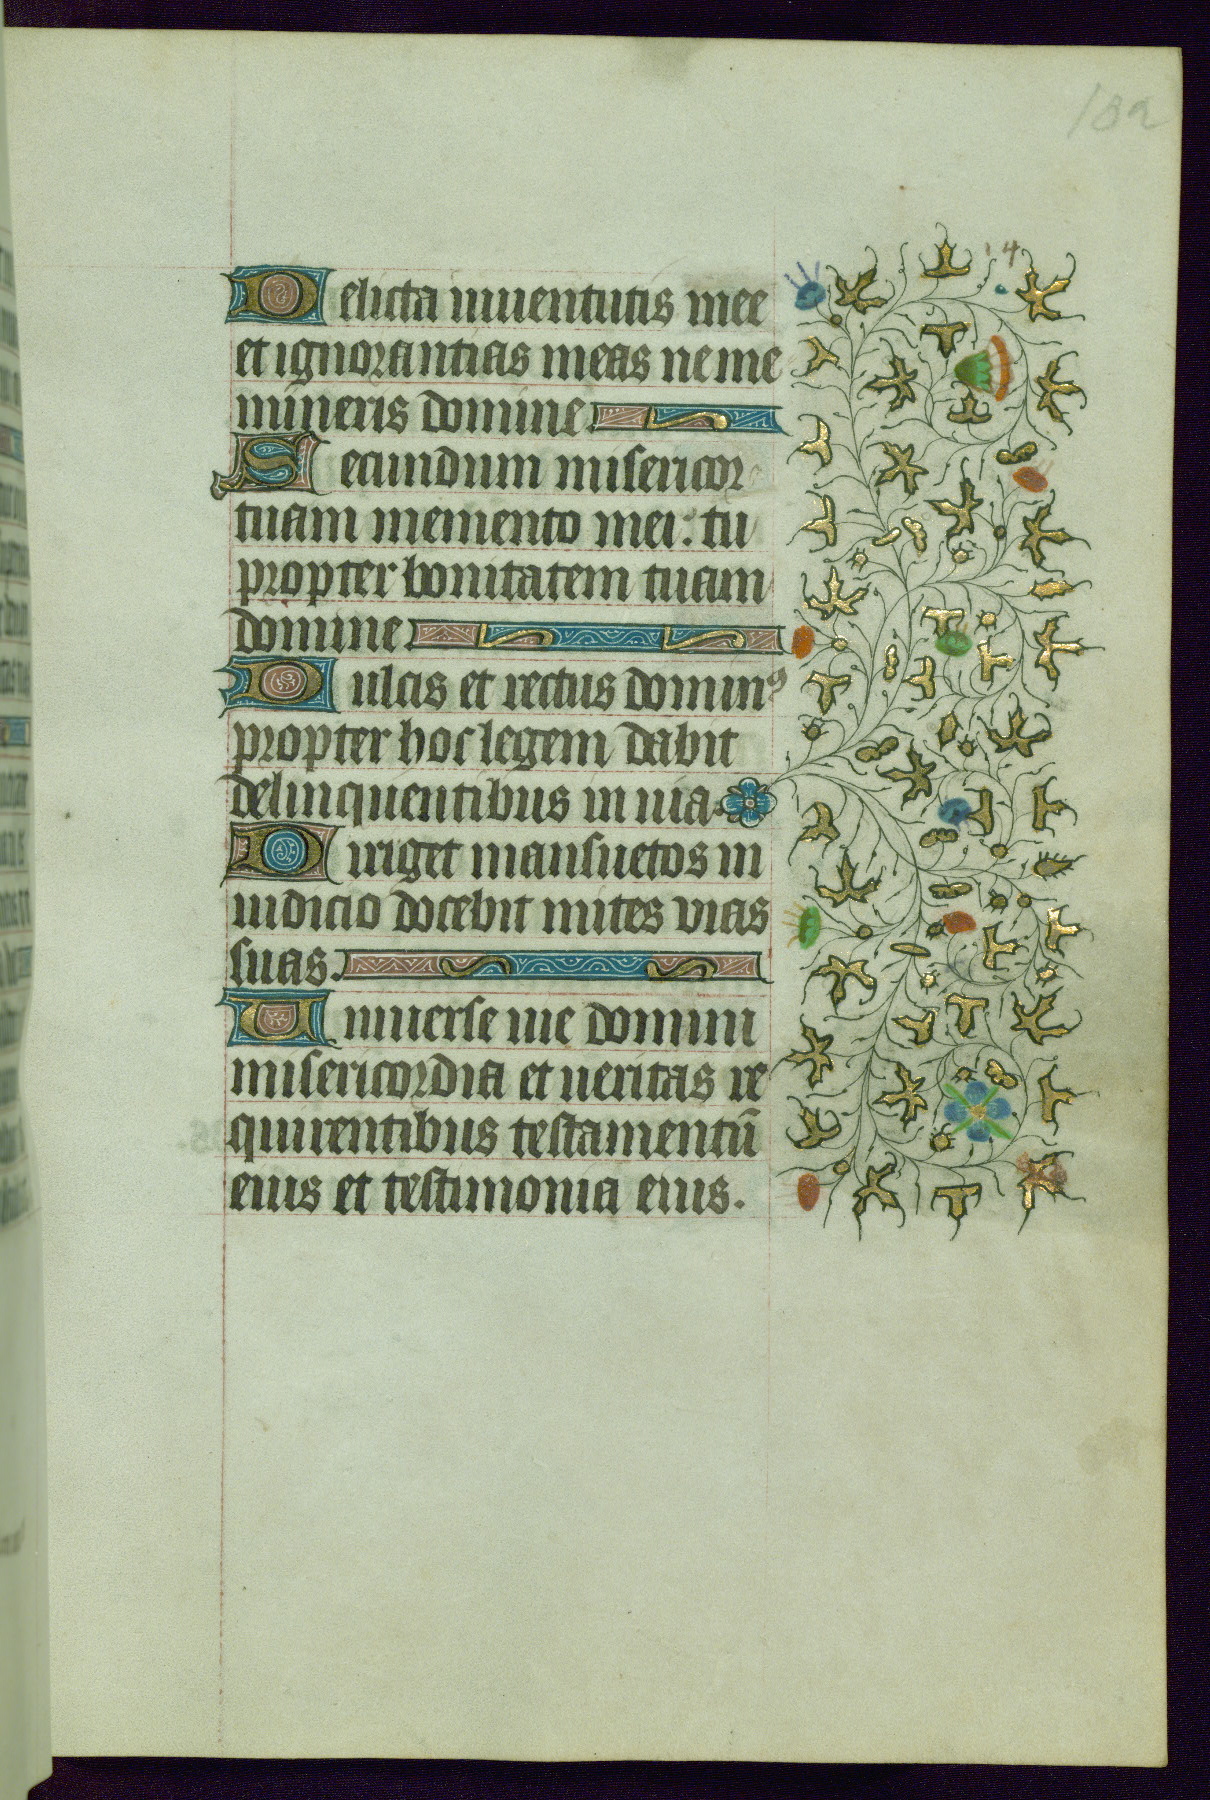 182
14
Delicta iuuentutis mee
et ignorantias meas ne me
mineris domine.
Secundum misericor
tuam memento mei: tu
propter bonitatem tuam
domine
Dulcis et rectus domin⁹
propter hoc legem dabit
delinquentibus in uia.
Diriget mansuetos in
iudicio docebit mites vias
suas.
Uniuerse uie domini
misericordia et ueritas re
quirentibus testamentū
eius et testimonia eius.